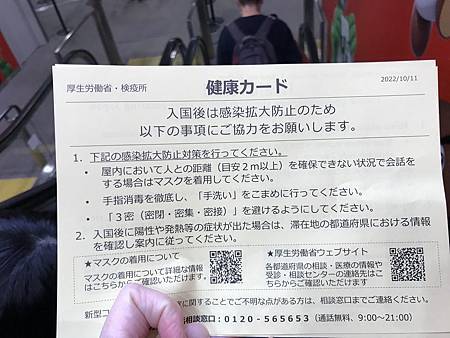 厚生労働省・検疫所
健康カード
2022/10/11
入国後は感染拡大防止のため
以下の事項にご協力をお願いします。
1. 下記の感染拡大防止対策を行ってください。
・ 屋内において人との距離(目安2m以上)を確保できない状況で会話を
する場合はマスクを着用してください。
・ 手指消毒を徹底し、「手洗い」をこまめに行ってください。
・ 「3密(密閉・密集・密接)」を避けるようにしてください。
2. 入国後に陽性や発熱等の症状が出た場合は、滞在地の都道府県における情報
を確認し案内に従ってください。
★マスクの着用について
マスクの着用について詳細な情報
はこちらからご確認いただけます。
★厚生労働省ウェブサイト
各都道府県の相談・医療の情報や
受診・相談センターの連絡先はこ
ちらからご確認いただけます
新型コ に関することでご不明な点がある方は、相談窓口までご連絡ください。
相談窓口:0120-565653(通話無料、9:00~21:00)